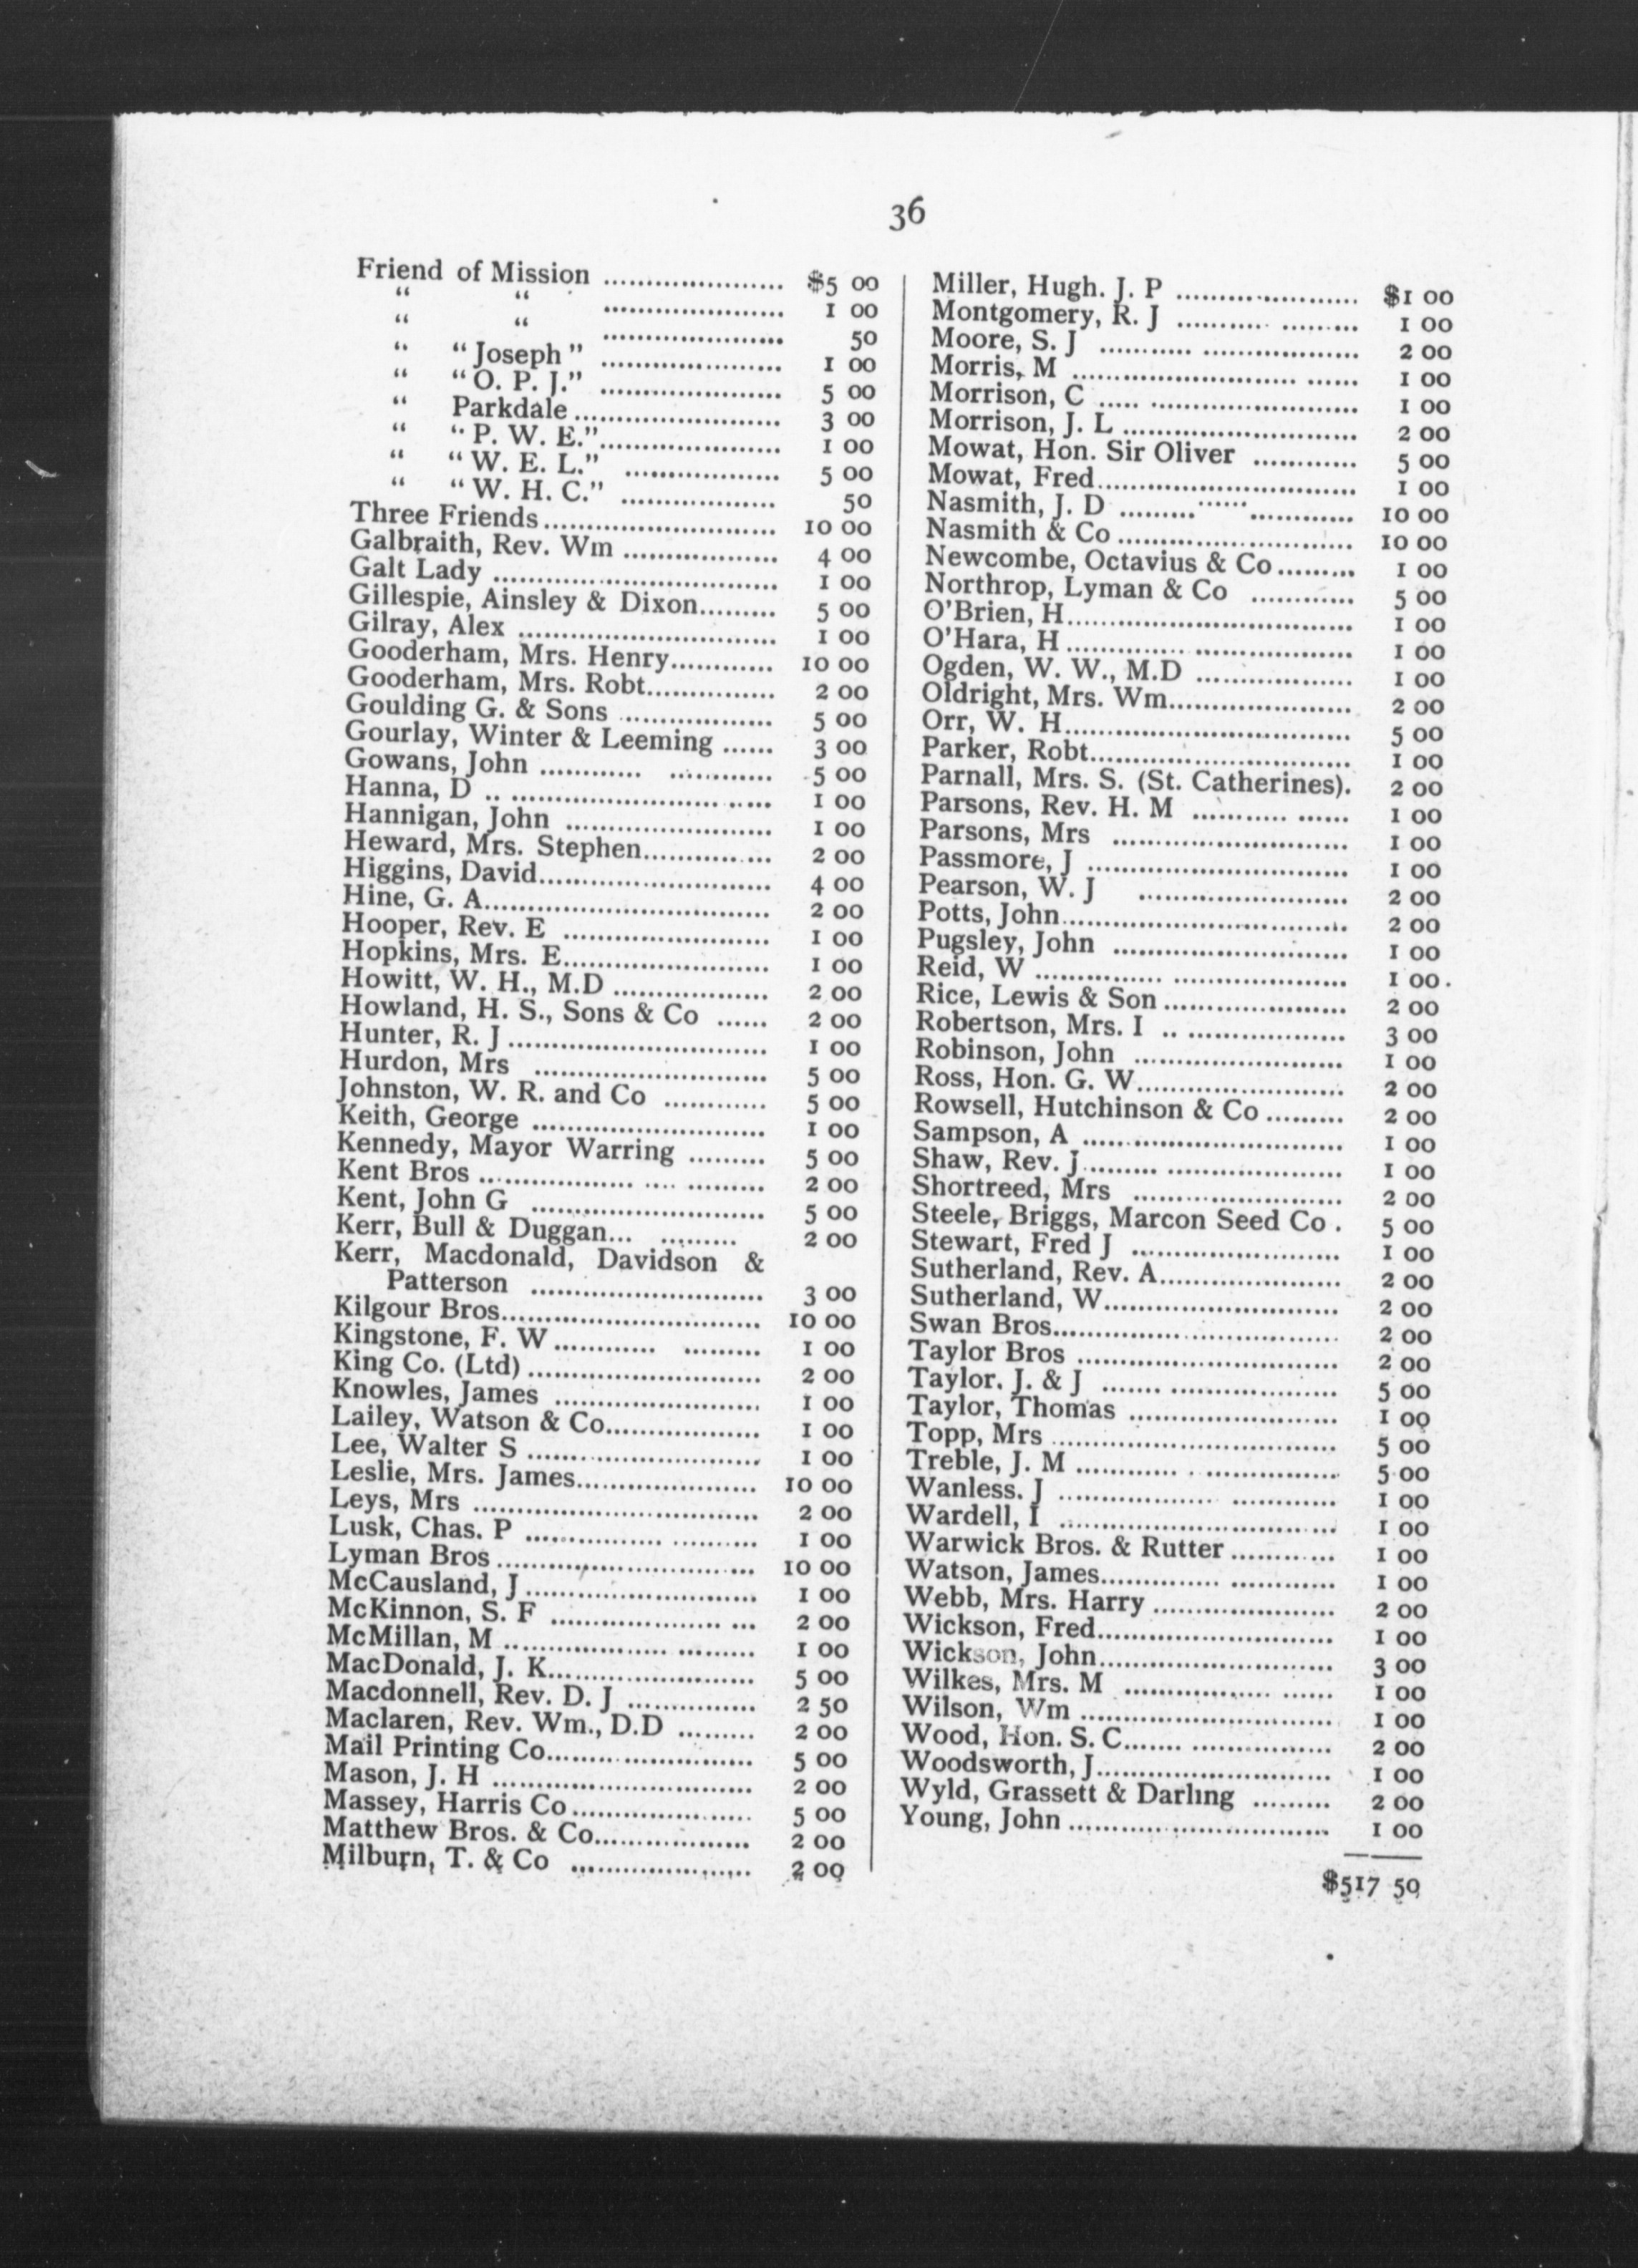 36
Friend of Mission ..................... $5 00
“ “ ..................... 1 00
“ “ ..................... 50
“ “Joseph” ..................... 1 00
“ “O. P. J.” ..................... 5 00
“ Parkdale ..................... 3 00
“ “P. W. E.”..................... 1 00
“ “W. E. L.” .................. 5 00
“ “W. H. C.” .................. 50
Three Friends ........................... 10 00
Galbraith, Rev. Wm .................. 4 00
Galt Lady ................................. 1 00
Gillespie, Ainsley & Dixon......... 5 00
Gilray, Alex .............................. 1 00
Gooderham, Mrs. Henry............ 10 00
Gooderham, Mrs. Robt............... 2 00
Goulding G. & Sons .................. 5 00
Gourlay, Winter & Leeming ...... 3 00
Gowans, John ............ ............ 5 00
Hanna, D .. .............................. 1 00
Hannigan, John ........................ 1 00
Heward, Mrs. Stephen............... 2 00
Higgins, David........................... 4 00
Hine, G. A................................. 2 00
Hooper, Rev. E ........................ 1 00
Hopkins, Mrs. E........................ 1 00
Howitt, W. H., M.D .................. 2 00
Howland, H. S., Sons & Co ...... 2 00
Hunter, R. J .............................. 1 00
Hurdon, Mrs ........................... 5 00
Johnston, W. R. and Co ............ 5 00
Keith, George ........................... 1 00
Kennedy, Mayor Warring ......... 5 00
Kent Bros .................. .... ......... 2 00
Kent, John G ........................... 5 00
Kerr, Bull & Duggan... ......... 2 00
Kerr, Macdonald, Davidson &
Patterson ........................... 3 00
Kilgour Bros.............................. 10 00
Kingstone, F. W ............ ......... 1 00
King Co. (Ltd) ........................... 2 00
Knowles, James ........................ 1 00
Lailey, Watson & Co.................. 1 00
Lee, Walter S ........................... 1 00
Leslie, Mrs. James..................... 10 00
Leys, Mrs ................................. 2 00
Lusk, Chas. P ................ .......... 1 00
Lyman Bros .............................. 10 00
McCausland, J ........................... 1 00
McKinnon, S. F .................... ... 2 00
McMillan, M ................... ......... 1 00
MacDonald, J. K........................ 5 00
Macdonnell, Rev. D. J ............... 2 50
Maclaren, Rev. Wm., D.D ......... 2 00
Mail Printing Co........................ 5 00
Mason, J. H .............................. 2 00
Massey, Harris Co ..................... 5 00
Matthew Bros. & Co.................. 2 00
Milburn, T. & Co ..................... 2 00
Miller, Hugh. J. P ..................... $1 00
Montgomery, R. J ........... ......... 1 00
Moore, S. J ........... .................. 2 00
Morris, M .......................... ...... 1 00
Morrison, C ..... ........................ 1 00
Morrison, J. L ........................... 2 00
Mowat, Hon. Sir Oliver ............ 5 00
Mowat, Fred.............................. 1 00
Nasmith, J. D ........................... 10 00
Nasmith & Co ........................... 10 00
Newcombe, Octavius & Co ......... 1 00
Northrop, Lyman & Co ............ 5 00
O’Brien, H................................. 1 00
O’Hara, H ................................. 1 00
Ogden, W. W., M.D .................. 1 00
Oldright, Mrs. Wm..................... 2 00
Orr, W. H................................. 5 00
Parker, Robt.............................. 1 00
Parnall, Mrs. S. (St. Catherines). 2 00
Parsons, Rev. H. M ........... ...... 1 00
Parsons, Mrs ........................... 1 00
Passmore, J .............................. 1 00
Pearson, W. J ........................ 2 00
Potts, John................................. 2 00
Pugsley, John ........................... 1 00
Reid, W ............... .................... 1 00.
Rice, Lewis & Son ..................... 2 00
Robertson, Mrs. I .. .................. 3 00
Robinson, John ........................ 1 00
Ross, Hon. G. W........................ 2 00
Rowsell, Hutchinson & Co ......... 2 00
Sampson, A .............................. 1 00
Shaw, Rev. J......... .................... 1 00
Shortreed, Mrs ........................ 2 00
Steele, Briggs, Marcon Seed Co . 5 00
Stewart, Fred J ........................ 1 00
Sutherland, Rev. A..................... 2 00
Sutherland, W........................... 2 00
Swan Bros................................. 2 00
Taylor Bros .............................. 2 00
Taylor. J. & J ....... ................... 5 00
Taylor, Thomas ........................ 1 00
Topp, Mrs ................................. 5 00
Treble, J. M ............ . ............... 5 00
Wanless. J .................. ............ 1 00
Wardell, I ................................ 1 00
Warwick Bros. & Rutter ............ 1 00
Watson, James.............. ............ 1 00
Webb, Mrs. Harry ..................... 2 00
Wickson, Fred........................... 1 00
Wickson, John........................... 3 00
Wilkes, Mrs. M ................. ...... 1 00
Wilson, Wm ............................. 1 00
Wood, Hon. S. C....... ................ 2 00
Woodsworth, J........................... 1 00
Wyld, Grassett & Darling ......... 2 00
Young, John .............................. 1 00
$517 50